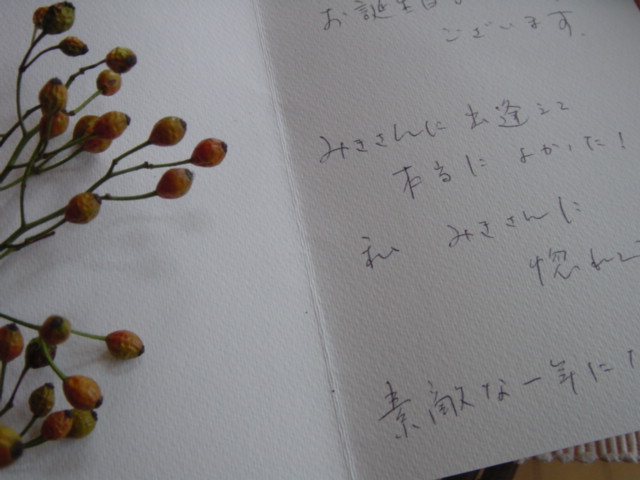 お誕生日
ございます。
みきさんに出逢えて
本当によかった!
私 みきさんに
惚れて
素敵な一年に